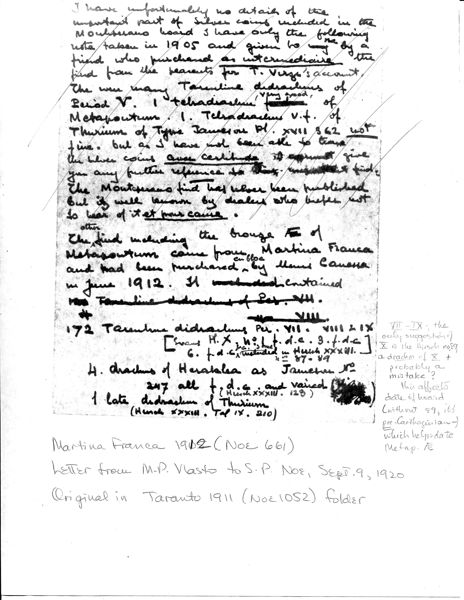 I have unfortunately no details of the
important part of silver coins included in the
Montesano hoard I have only the following
note taken in 1905 and given to me by a
friend who purchased as intermediaire the
find from the peasants for T. Virzi's account.
The were many Tarentine didrachms of
Period V. 1 tetradrachm very good of
Metapontum. 1. Tetradrachm v.f. of
Thurium of Type Jameson Pl. XVII 362 not
fine. but as I have not been able to trace
the silver coins avec certitude it give
you any further reference to find.
The Montesano find has never been published
but is well known by dealers who prefer not
to hear of it et pour cause.
The other find including the bronze Æ of
Metapontum came from Martina Franca
and had been purchased en bloc by Mens Canessa
in June 1912. It contained
Tarentine didrachms of Per. VII.
VIII
172 Tarentine didrachms Per. VII. VIII & IX
[Evans H. X, f.d.c. 3. f.d.c
6. f.d.c, included in Hirsch XXXIII. 87-89
4. drachms of Heraklea as Jameson No
247 all f.d.c. and varied
(Hirsch XXXIII. 128)
1 late didrachm of Thurium
(Hirsch XXXIII. Taf IX. 210)
VII-IX - the
only suggestion of
X is the Hirsch no 89
a drachm of X +
probably a
mistake?
This affects
date of hoard
(without 89, it's
pre-Carthaginian)
which helps date
Metap. Æ
Martina Franca 1912 (Noe 661)
Letter from M.P. Vlasto to S.P. Noe, Sept. 9, 1920
Original in Taranto 1911 (Noe 1052) folder